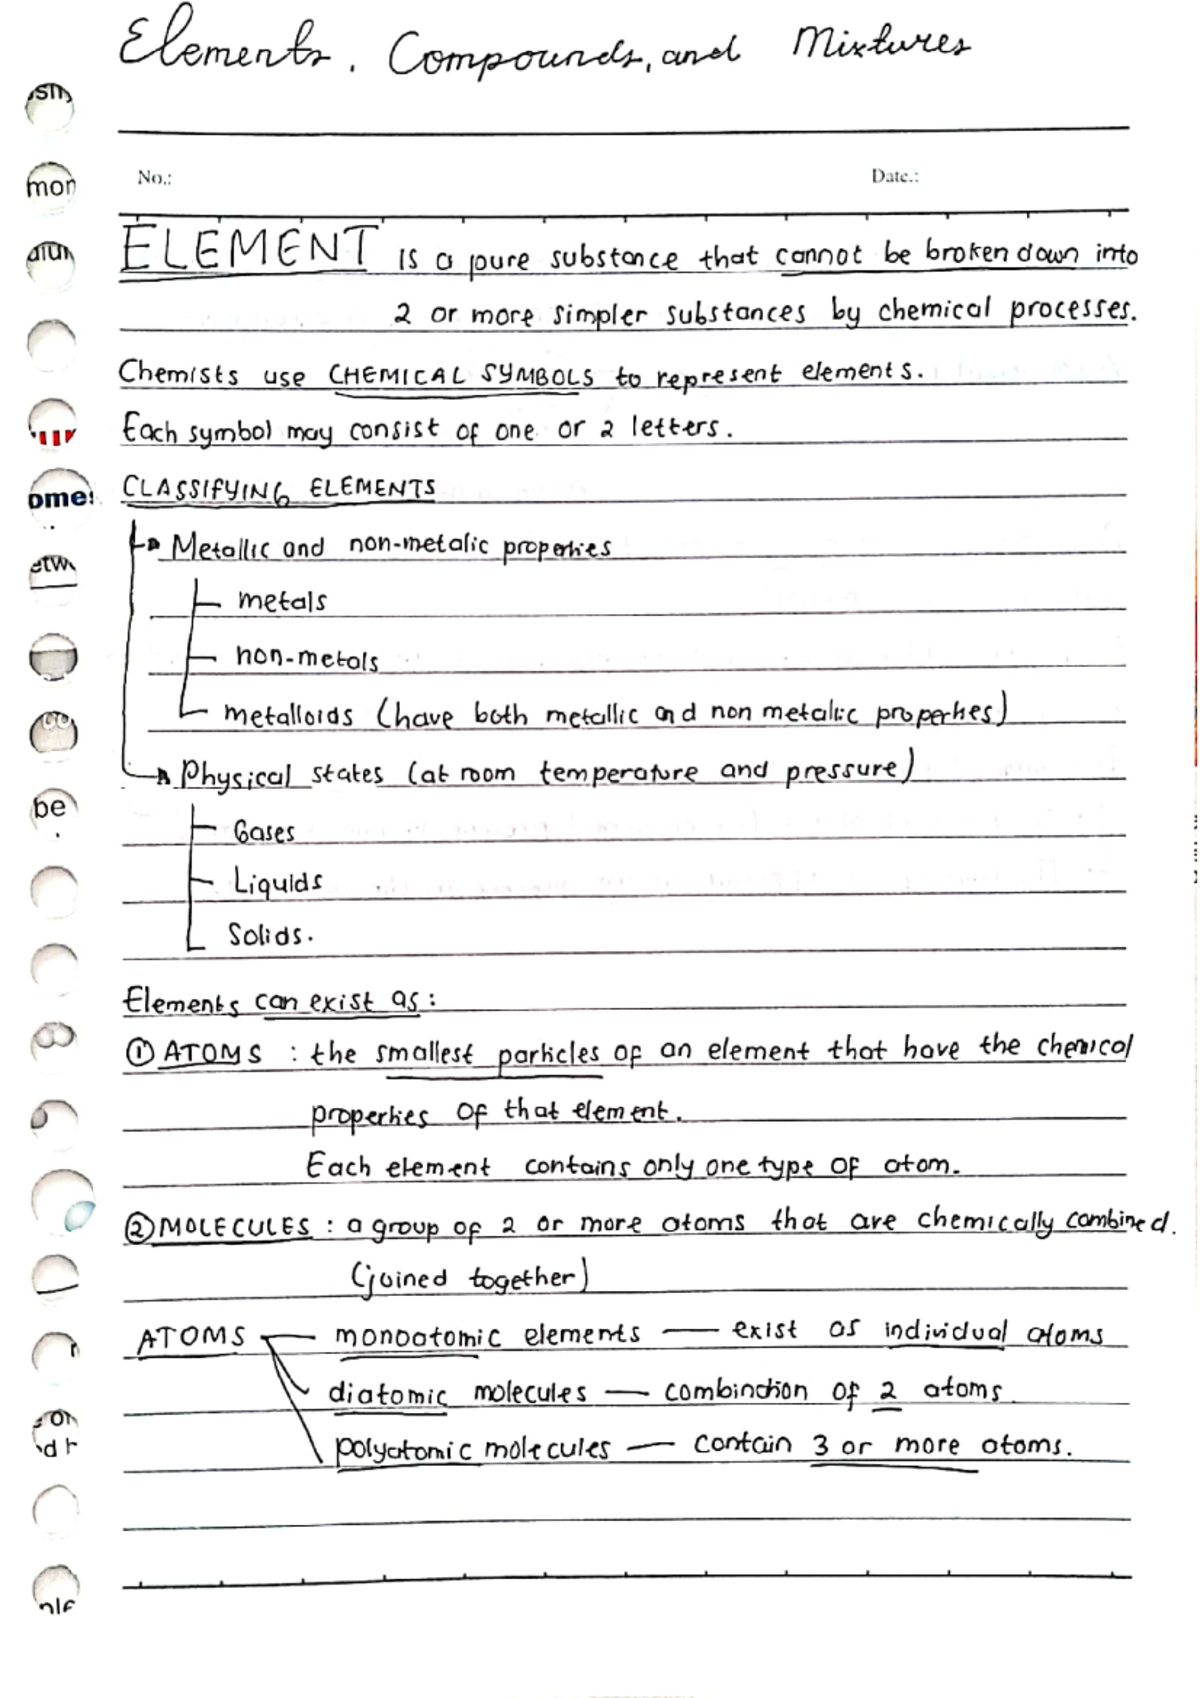 Elements, Compounds, and Mixtures
No.: Date.:
ELEMENT is a pure substance that cannot be broken down into
2 or more simpler substances by chemical processes.
Chemists use CHEMICAL SYMBOLS to represent elements.
Each symbol may consist of one or 2 letters.
CLASSIFYING ELEMENTS
Metallic and non-metalic properties
metals
non-metals
metalloids (have both metallic and non metalic properties)
Physical states (at room temperature and pressure)
Gases
Liquids
Solids.
Elements can exist as:
① ATOMS : the smallest particles of an element that have the chemical
properties of that element.
Each element contains only one type of atom.
② MOLECULES : a group of 2 or more atoms that are chemically combined.
(joined together)
ATOMS — monoatomic elements — exist as individual atoms
diatomic molecules — combination of 2 atoms
polyatomic molecules — contain 3 or more atoms.